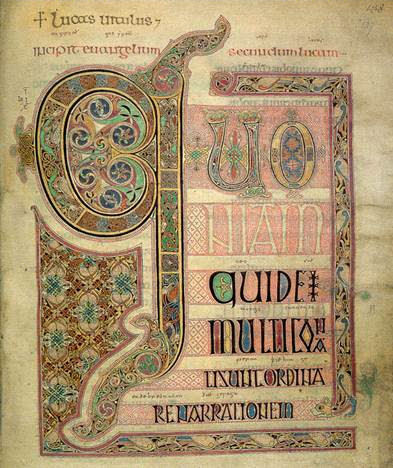 + lucas uitulus
incipit euangelium secundum lucam
QUO
NIAM
QUIDEM
MULTICONA
TISUNTORDINA
RENARRATIONEM